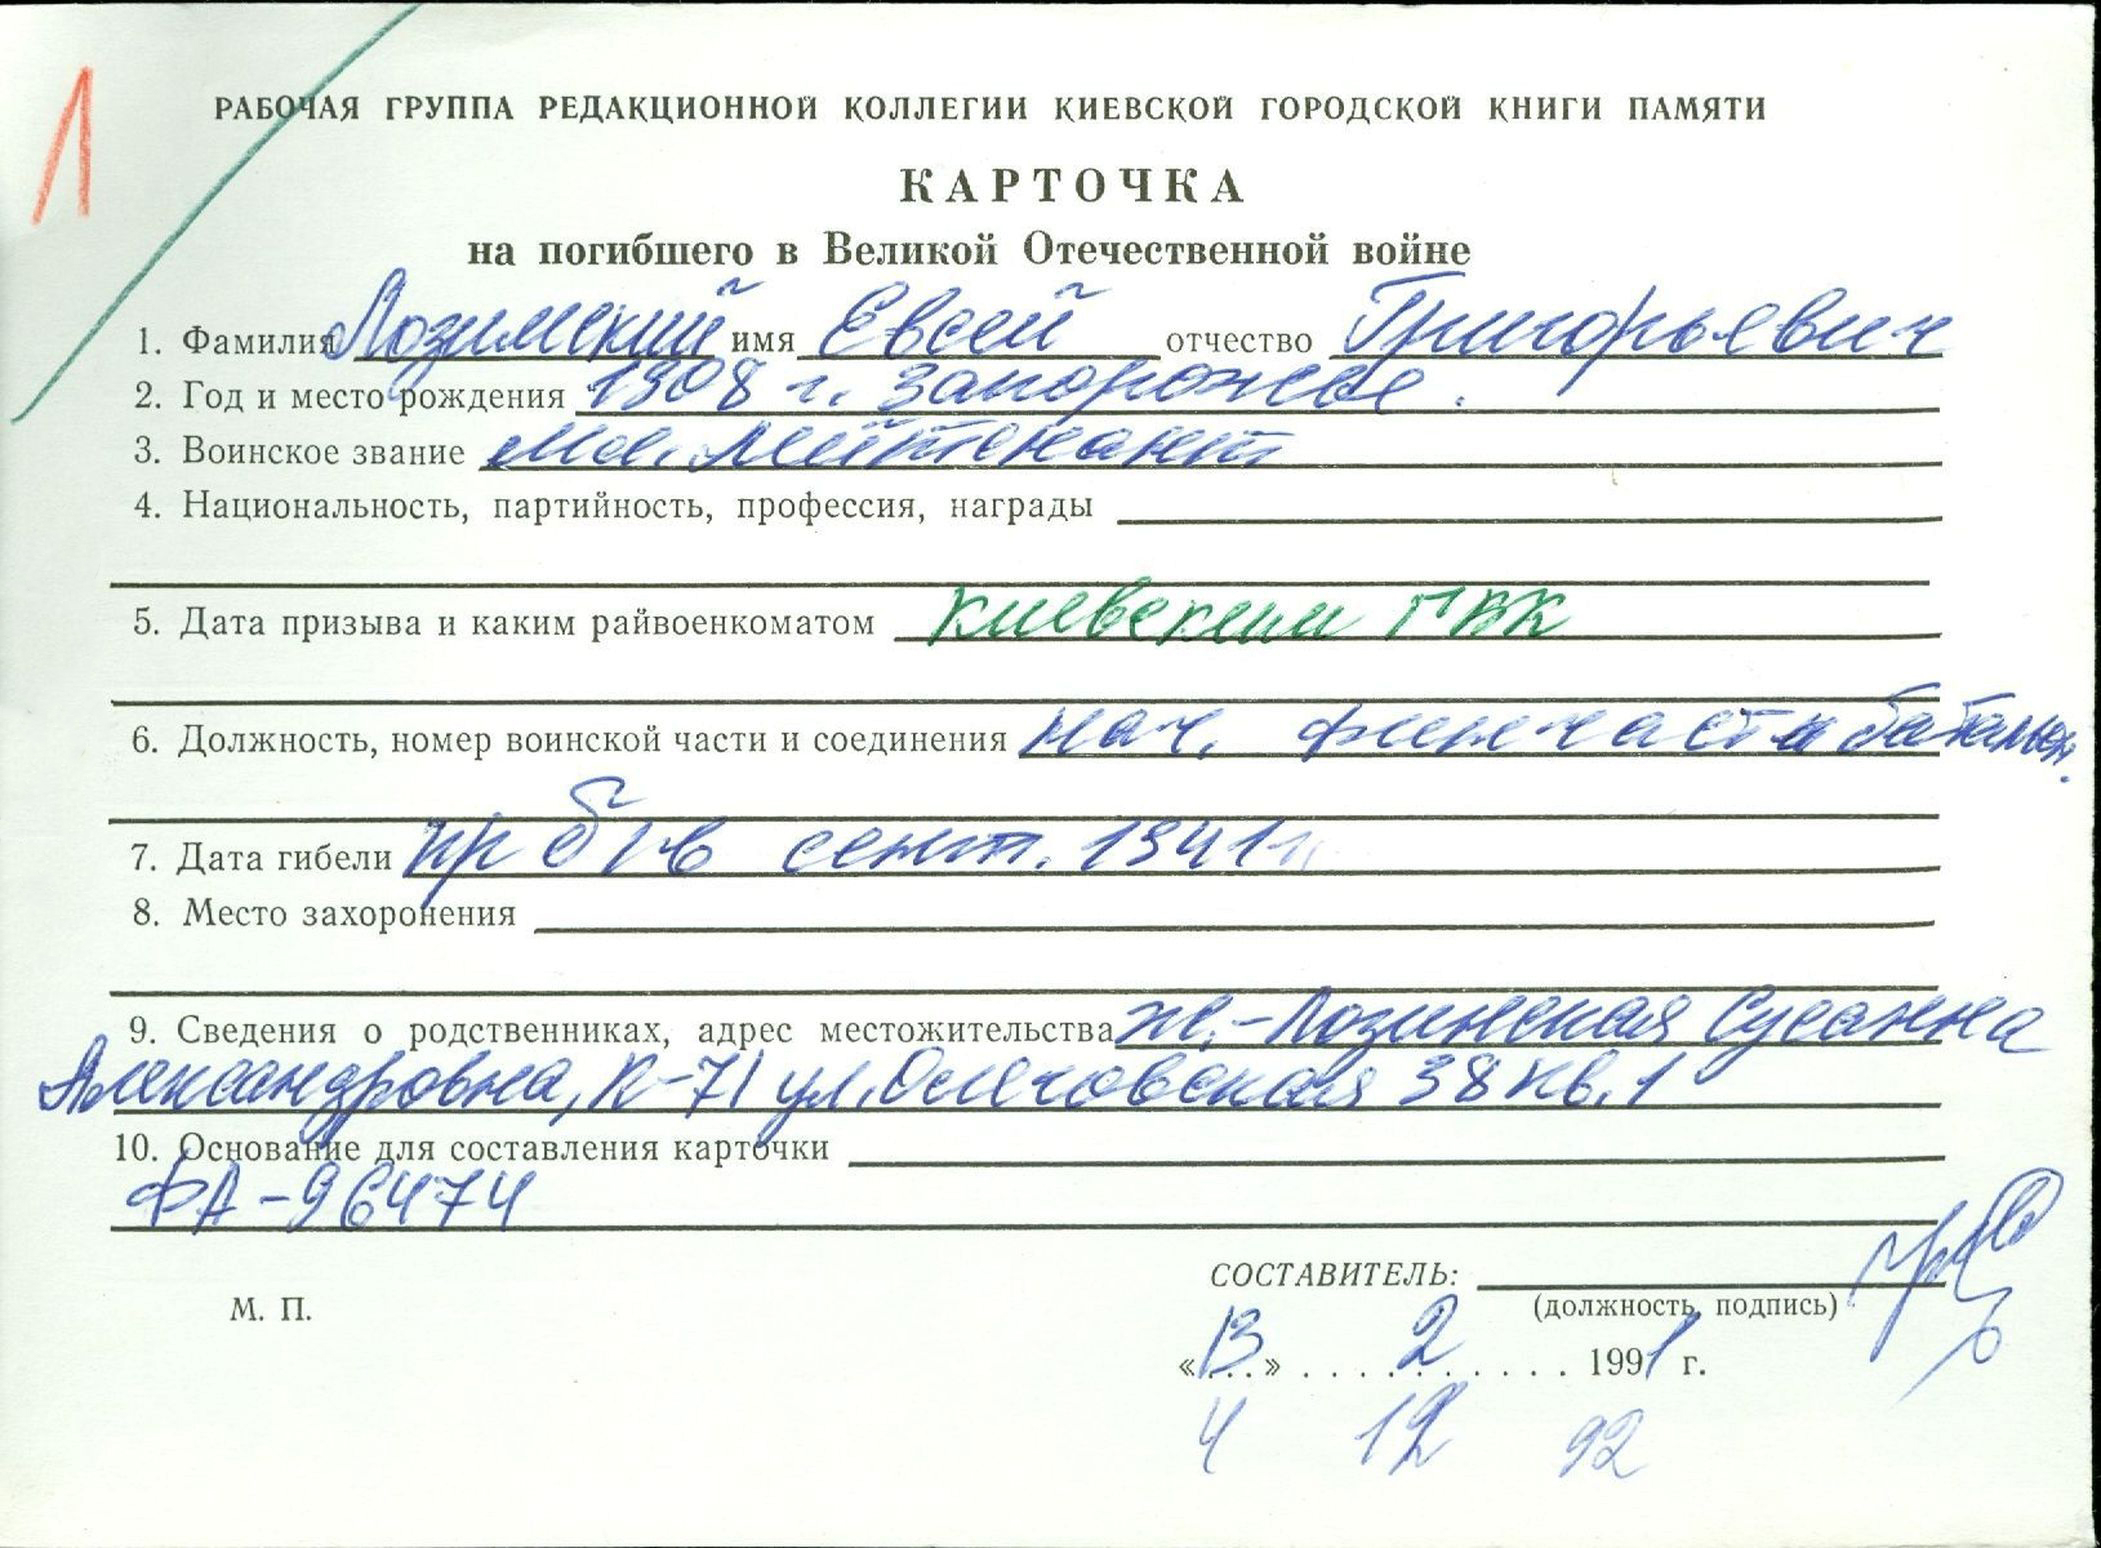 Л
РАБОЧАЯ ГРУППА РЕДАКЦИОННОЙ КОЛЛЕГИИ КИЕВСКОЙ ГОРОДСКОЙ КНИГИ ПАМЯТИ
КАРТОЧКА
на погибшего в Великой Отечественной войне
1. Фамилия Лозинский имя Евсей отчество Григорьевич
2. Год и место рождения 1908 г. Запорожье.
3. Воинское звание мл. лейтенант
4. Национальность, партийность, профессия, награды
5. Дата призыва и каким райвоенкоматом Киевским ГВК
6. Должность, номер воинской части и соединения нач. финчасти батальон.
7. Дата гибели пр б/в сент. 1941 г.
8. Место захоронения
9. Сведения о родственниках, адрес местожительства ж. - Лозинская Сусанна
Александровна, К-71 ул. 38 кв. 1
10. Основание для составления карточки
ФА-96474
СОСТАВИТЕЛЬ:
М. П. (должность, подпись)
«13» 2 1991 г.
4 12 92